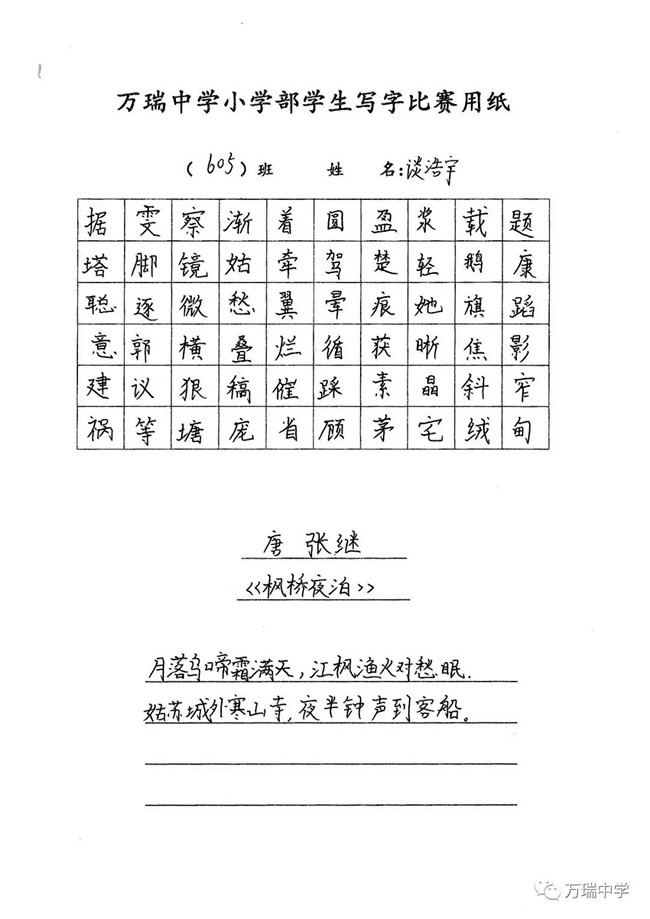 万瑞中学小学部学生写字比赛用纸
（605）班 姓 名:谈浩宇
据 雯 察 渐 着 圆 盈 浆 载 题
塔 脚 镜 姑 牵 驾 楚 轻 鹅 康
聪 逐 微 愁 翼 晕 痕 她 旗 蹈
意 郭 横 叠 烂 循 获 晰 焦 影
建 议 狠 稿 催 踩 素 晶 斜 窄
祸 等 塘 庞 省 顾 茅 宅 绒 甸
唐 张继
<<枫桥夜泊>>
月落乌啼霜满天，江枫渔火对愁眠.
姑苏城外寒山寺,夜半钟声到客船。
万瑞中学